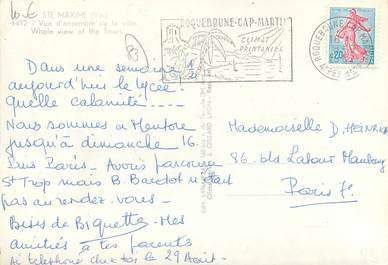 10-€
STE MAXIME (Var)
1412 - Vue d'ensemble de la ville
Whole view of the Town
83
ROQUEBRUNE-CAP-MARTIN
CLIMAT
PRINTANIER
ROQUEBRUNE
20
Dans une semaine
aujourd'hui le lycée
quelle calamité----
Nous sommes à Menton
jusqu'à dimanche 16.
Puis Paris. Avons parcouru
St Trop mais B Bardot n'était
pas au rendez-vous-
Bises de Biquette. Mes
amitiés à tes parents
Ai téléphoné chez toi le 29 Août.
Mademoiselle D. HEINRICH
86, bld Latour Maubourg
Paris 7e.